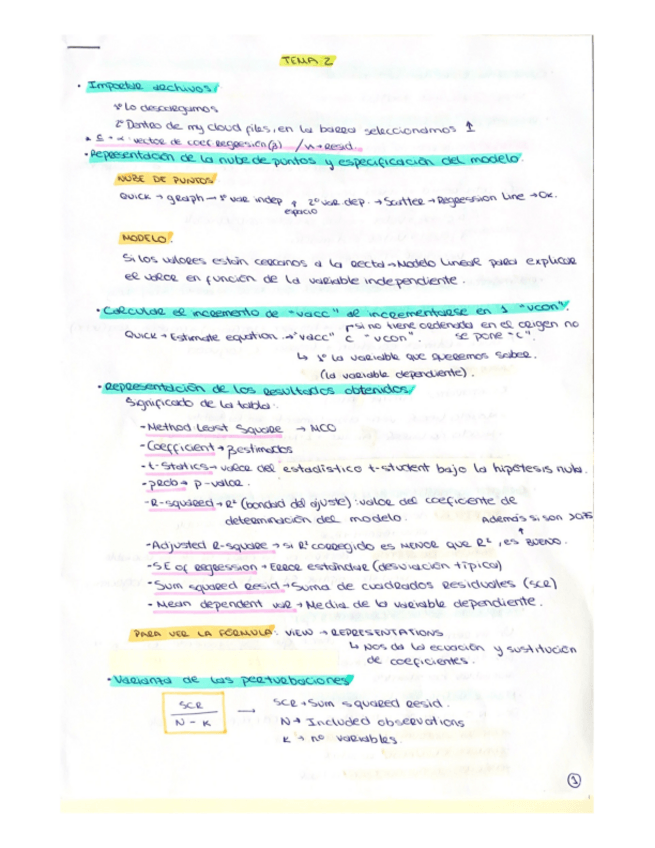 TEMA 2
· Importar archivos/
1º Lo descargamos
2º Dentro de my cloud files, en la barra seleccionamos ↑
vector de coef regresión (β) / u → resid.
· Representación de la nube de puntos y especificación del modelo.
NUBE DE PUNTOS
Quick → graph → 1º var indep y 2º var dep. → Scatter → Regression Line → OK.
espacio
MODELO.
Si los valores están cercanos a la recta → Modelo Lineal para explicar
el valor en función de la variable independiente.
· Calcular el incremento de "vacc" al incrementarse en 1 "vcon".
si no tiene ordenada en el origen no
Quick → Estimate equation → "vacc" c "vcon". se pone "c".
↳ 1º la variable que queremos saber.
(la variable dependiente).
· Representación de los resultados obtenidos/
Significado de la tabla:
- Method Least Square → MCO
- Coefficient → β estimados
- t-Statics → valor del estadístico t-student bajo la hipótesis nula.
- prob → p-valor.
- R-squared → R² (bondad del ajuste): valor del coeficiente de
determinación del modelo.
Además si son
- Adjusted R-square → si R² corregido es MENOR que R², es BUENO.
- SE of regression → Error estándar (desviación típica)
- Sum squared resid → Suma de cuadrados residuales (SCR)
- Mean dependent var → Media de la variable dependiente.
PARA VER LA FÓRMULA: VIEW → REPRESENTATIONS
↳ Nos da la ecuación y sustitución
de coeficientes.
· Varianza de las perturbaciones/
SCR / N - K → SCR → Sum squared Resid.
N → Included observations
K → nº variables.
1